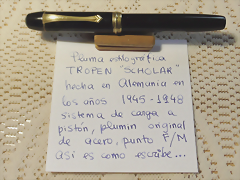 Pluma estilográfica
TROPEN SCHOLAR"
hecha en Alemania en
los años 1945-1948
sistema de carga a
pistón, plumin original
de acero, punto F/M
así es como escribe...